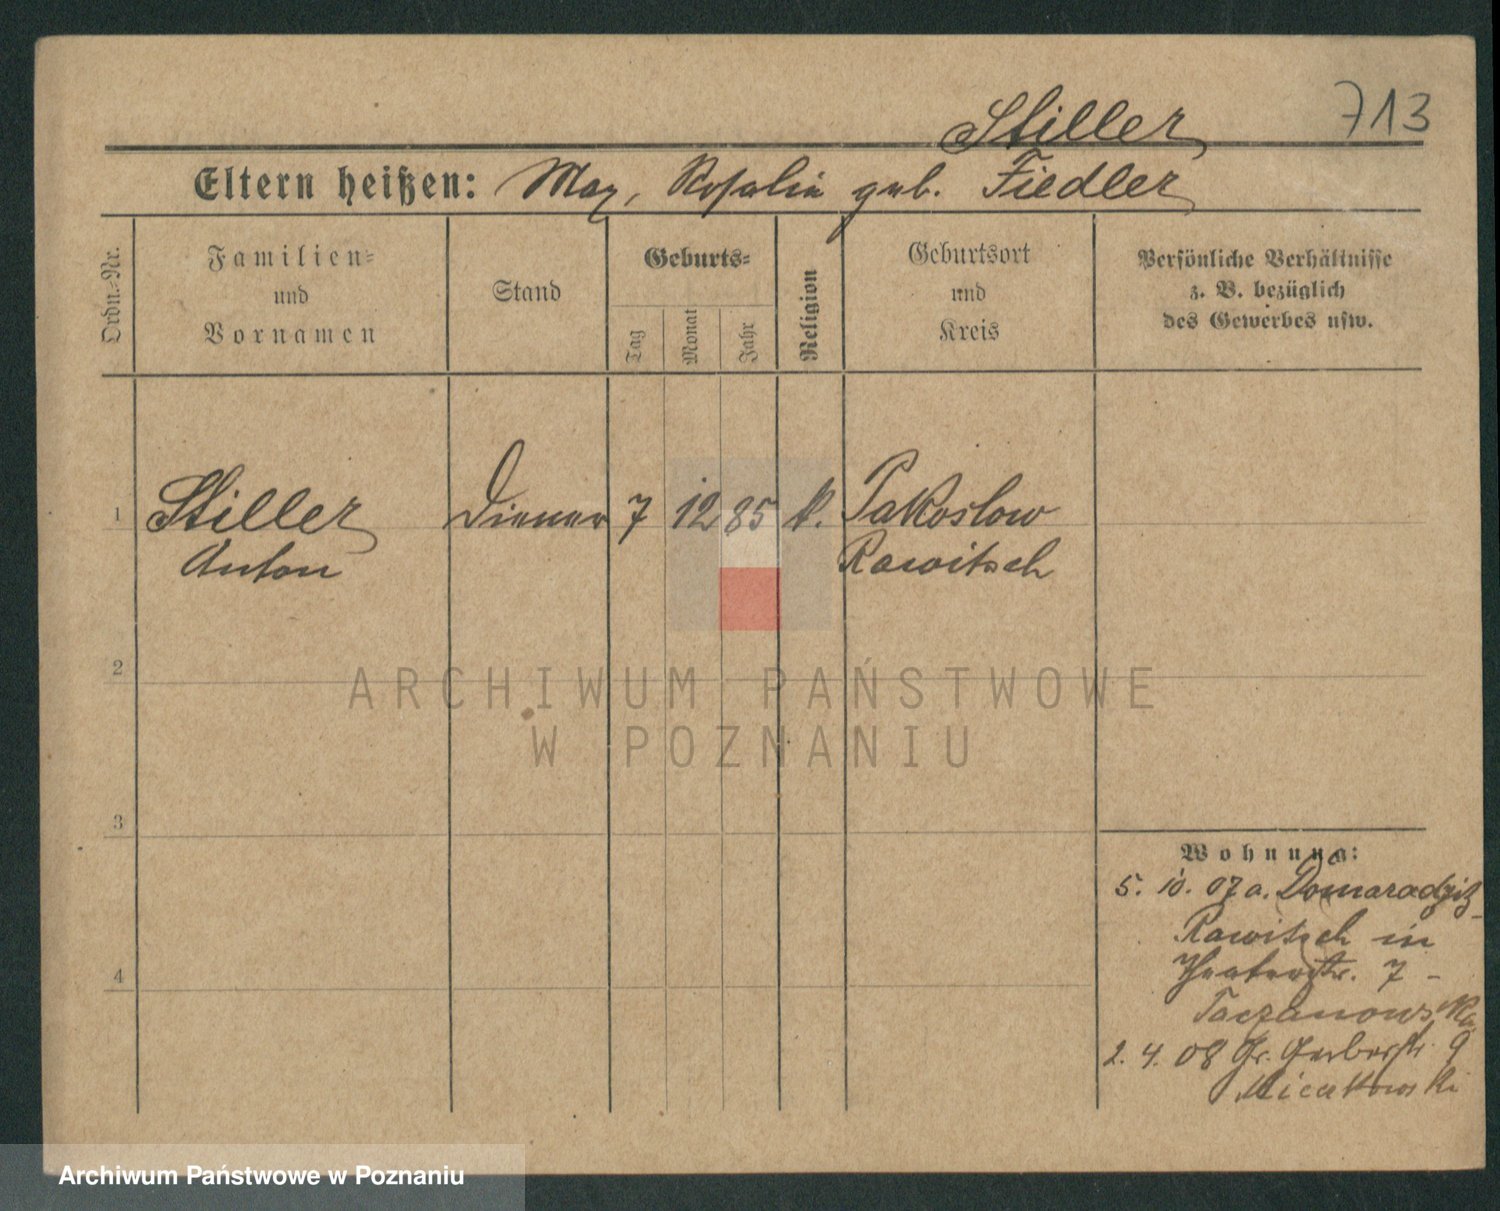 Stiller
713
Eltern heißen: Max, Rosalia geb. Fiedler
Ordn.-Nr.
Familien-
und
Vornamen
Stand
Geburts-
Tag
Monat
Jahr
Religion
Geburtsort
und
Kreis
Persönliche Verhältnisse
z. B. bezüglich
des Gewerbes usw.
1 Stiller Diener 7 12 85 k. Pakoslow
Anton Rawitsch
2
3
4
Wohnung:
5. 10. 07 a. Domaradzitz
Rawitsch in
Theaterstr. 7 -
Taczanowska
2. 4. 08 Gr. Gerberstr. 9
ARCHIWUM PAŃSTWOWE
W POZNANIU
Archiwum Państwowe w Poznaniu